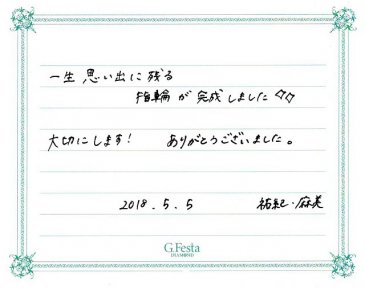 一生 思い出に残る
指輪が 完成しました
大切にします! ありがとうございました。
2018.5.5 祐紀・麻美
G.Festa
DIAMOND